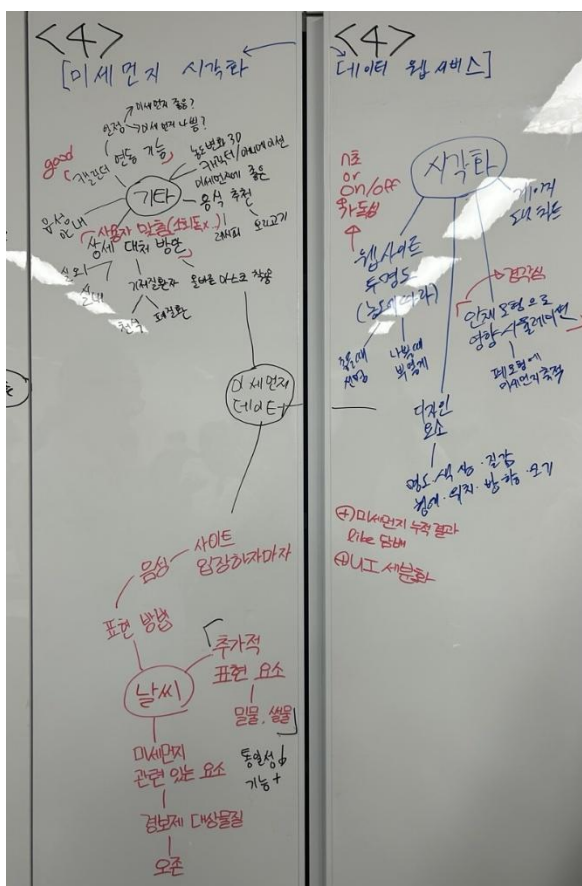 <4>
[미세먼지 시각화
미세먼지 좋음?
일정
미세먼지 나쁨?
good
캘린더 연동 기능
농도변화 3D
캐릭터/애니메이션
기타
미세먼지에 좋은
음식 추천
레시피
오리고기
음성안내
사용자 맞춤
상세 대처 방안
실외
실내
기저질환자
천식
폐질환
올바른 마스크 착용
미세먼지
데이터
음성
사이트
입장하자마자
표현 방법
날씨
추가적
표현 요소
밀물, 썰물
통일성↓
기능+
미세먼지
관련 있는 요소
경보제 대상물질
오존
<4>
데이터 웹 서비스]
시각화
n초
or
on/off
가독성
웹사이트
투명도
(농도에 따라)
좋을때
선명
나쁠때
뿌옇게
게이지
경각심
인체 모형으로
영향 시뮬레이션
폐 모형에
미세먼지 축적
디자인
요소
명도·색상·질감
형태·위치·방향·크기
⊕미세먼지 누적결과
like 담배
⊕UI 세분화